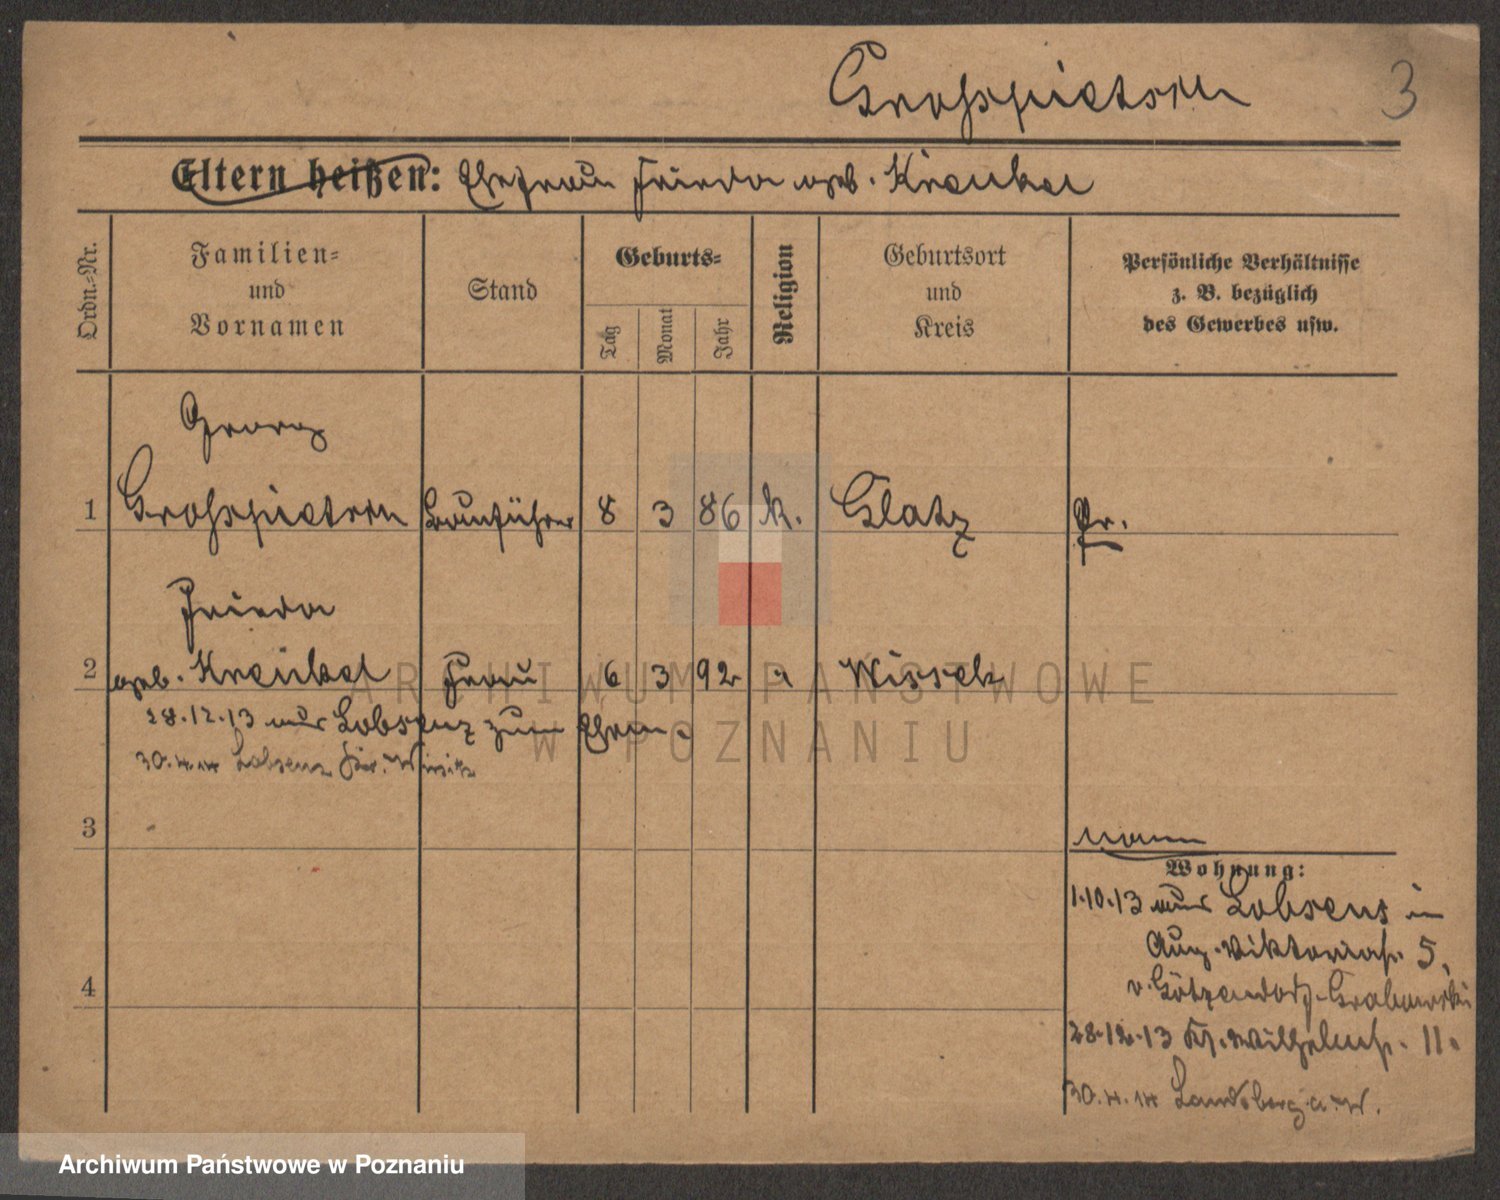 Grosspietsch
3
Eltern heißen: Ehefrau Frieda geb. Krenkel
Ordn.-Nr.
Familien-
und
Vornamen
Stand
Geburts-
Tag
Monat
Jahr
Religion
Geburtsort
und
Kreis
Persönliche Verhältnisse
z. B. bezüglich
des Gewerbes usw.
Georg
1 Grosspietsch Bauführer 8 3 86 k. Glatz Pr.
Frieda
2 geb. Krenkel Frau 6 3 92 Wissek
28.12.13 aus Lobsenz zum Ehem.
30.4.14 Lobsenz Kr. Wirsitz
3
Wohnung:
1.10.13 aus Lobsens in
Aug. Viktoriastr. 5,
v. Götzendorf-Grabowski
4
28.12.13 Wilhelmstr. 11.
30.4.14 Landsberg a. W.
ARCHIWUM PAŃSTWOWE
W POZNANIU
Archiwum Państwowe w Poznaniu